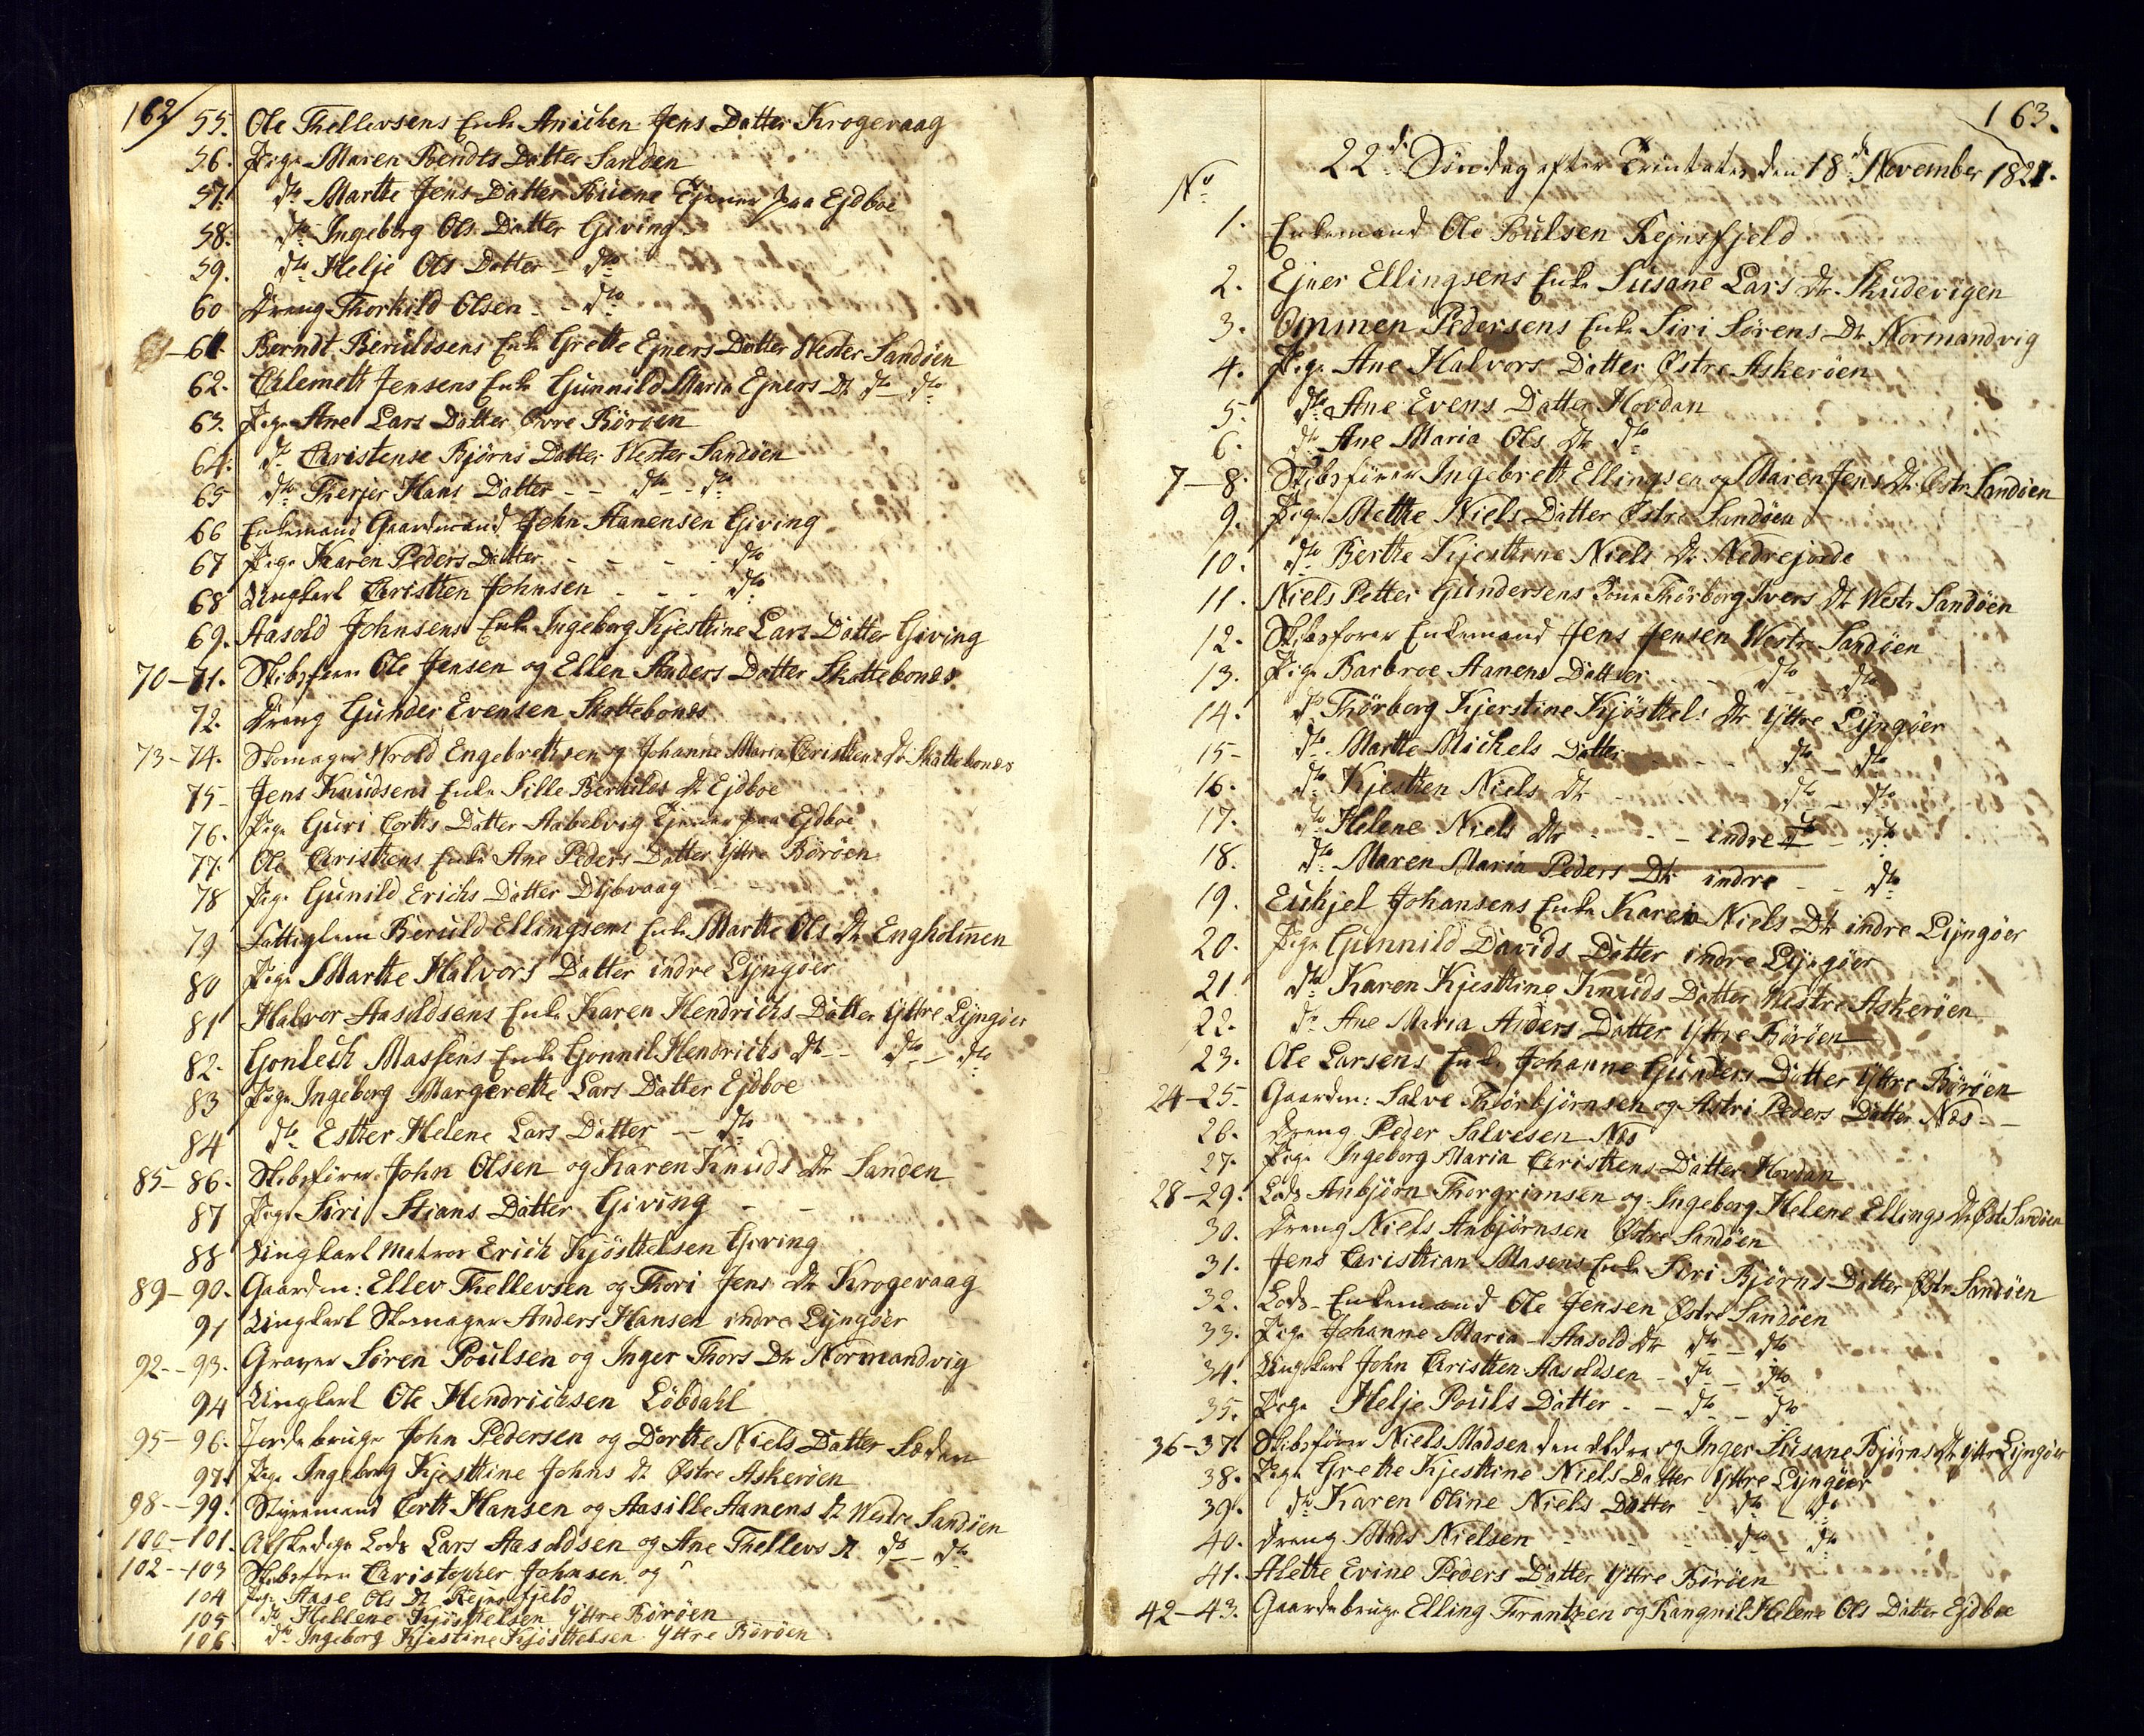 162
55. Ole Thellevsens Enke Anichen Jens Datter Krogevaag
56. Pige Maren Bendts Datter Sandøen
57. dto Marthe Jens Datter Buene Tjener paa Ejdboe
58. dto Ingeborg Ols Datter Giving
59. dto Helje Ols Datter - dto
60 Dreng Thorkild Olsen - - dto
61. Berndt Beruldsens Enke Grethe Ejners Datter Wester Sandøen
62. Clemeth Jensens Enke Gunnild Maria Ejners Dt dto - dto
63. Pige Ane Lars Datter Øvre Börøen
64. dto Christense Bjørns Datter Wester Sandøen
65 dto Therjer Hans Datter - - dto - dto
66 Enkemand Gaardmand John Aanensen Giving
67 Pige Karen Peders Datter - - - - dto
68 Ungkarl Christen Johnsen - - - dto
69. Aasold Johnsens Enke Ingeborg Kjestine Lars Datter Giving
70-71. Skibsfører Ole Jensen og Ellen Anders Datter Skottebones
72. Dreng Gunder Evensen Skottebones
73-74. Skomager Wrold Engebrethsen og Johanne Maria Christens Dt Skattebones
75- Jens Knudsens Enke Sille Berulds Dt Ejdboe
76. Pige Guri Corths Datter Aabelvig Tjener paa Ejdboe
77. Ole Christens Enke Ane Peders Datter Yttre Börøen
78 Pige Gunild Erichs Datter Dybvaag
79 Fattiglem Beruld Ellingsens Enke Marthe Ols Dt Engholmen
80 Pige Marthe Halvors Datter indre Lyngøer
81 Halvor Aasoldsens Enke Karen Hendrichs Datter Yttre Lyngøer
82. Gonlech Massens Enke Gonnil Hendrichs Dt - dto - dto
83 Pige Ingeborg Margerethe Lars Datter Ejdboe
84 dto Esther Helene Lars Datter - dto
85-86. Skibsfører John Olsen og Karen Knuds Dtr Sanden
87 Pige Siri Stians Datter Giving - -
88 Ungkarl Matros Erich Kjøsthelsen Giving
89-90. Gaardm: Ellev Thellevsen og Thori Jens Dtr Krogevaag
91 Ungkarl Skomager Anders Hansen indre Lyngøer
92--93. Graver Søren Poulsen og Inger Thors Dtr Normandvig
94 Ungkarl Ole Hendrichsen Løbdahl
95-96. Jordebruger John Pedersen og Dorthe Niels Datter Sæden
97. Pige Ingeborg Kjesthine Johns Dt Østre Askerøen
98--99. Styremand Corth Hansen og Aasille Aanens Dt Westre Sandøen
100-101. Afskediget Lods Lars Aasoldsen og Ane Thellevs Dt dto - dto
102--103 Skibsfører Christopher Johnsen og
104 Pige Aase Ols Dt Rejnsfjeld
105 dto Hellene Kjøsthelsen Yttre Börøen
106 dto Ingeborg Kjestine Kjøsthelsen Yttre Börøen
163.
22de Søndag efter Trinitatis den 18de November 1821.
No
1. Enkemand Ole Poulsen Rejnsfjeld
2. Ejner Ellingsens Enke Susane Lars Dtr Skudevigen
3. Ommen Pedersens Enke Siri Sørens Dtr Normandvig
4. Pige Ane Halvors Datter Østre Askerøen
5. dto Ane Evens Datter Hovdan
6. dto Ane Maria Ols Dtr dto
7-8. Skibsfører Ingebreth Ellingsen og Maren Jens Dtr Østre Sandøen
9. Pige Methe Niels Datter Østre Sandøen
10. dto Berthe Kjesthine Niels Dtr Nedrejorde
11. Niels Petter Gundersens Kone Thörborg Ivers Dtr Westre Sandøen
12. Skibsfører Enkemand Jens Jensen Westre Sandøen
13. Pige Barbroe Aanens Datter - - dto - dto
14. dto Thörborg Kjerstine Kjösthels Dtr Yttre Lyngøer
15- dto Marthe Michels Datter - - - dto - dto
16. dto Kjesthen Niels Dtr - dto - dto
17. dto Helene Niels Dtr - - - indre - dto
18. dto Maren Maria Peders Dtr indre - - dto
19. Euhjel Johansens Enke Karen Niels Dtr indre Lyngøer
20. Pige Gunnild Davids Datter indre Lyngøer
21 dto Karen Kjesthine Knuds Datter Westre Askerøen
22. dto Ane Maria Anders Datter Yttre Börøen
23. Ole Larsens Enke Johanne Gunders Datter Yttre Börøen
24-25. Gaardm: Salve Thörbjørnsen og Astri Peders Datter Næs - -
26. Dreng Peder Salvesen Næs
27. Pige Ingeborg Maria Christens Datter Hovdan
28-29. Lods Anbjörn Thorgrimsen og Ingeborg Helene Ellings Dt Østre Sandøen
30. Dreng Niels Anbjörnsen Østre Sandøen
31. Jens Christhian Masens Enke Siri Bjørns Datter Østre Sandøen
32. Lods - Enkemand Ole Jensen Østre Sandøen
33. Pige Johanne Maria Aasold Dtr dto - dto
34. Ungkarl John Christhen Aasoldsen - dto - dto
35. Pige Helje Pouls Datter - - dto - dto
36-37. Skibsfører Niels Madsen den ældre og Inger Susane Bjørns Dt Yttre Lyngøer
38. Pige Grethe Kjesthine Niels Datter Yttre Lyngøer
39. dto Karen Oline Niels Datter - dto - dto
40. Dreng Mads Nielsen - - - dto - dto
41. Alethe Evine Peders Datter Yttre Börøen
42-43. Gaardebruger Elling Frantzen og Rangnil Helene Ols Datter Ejdboe